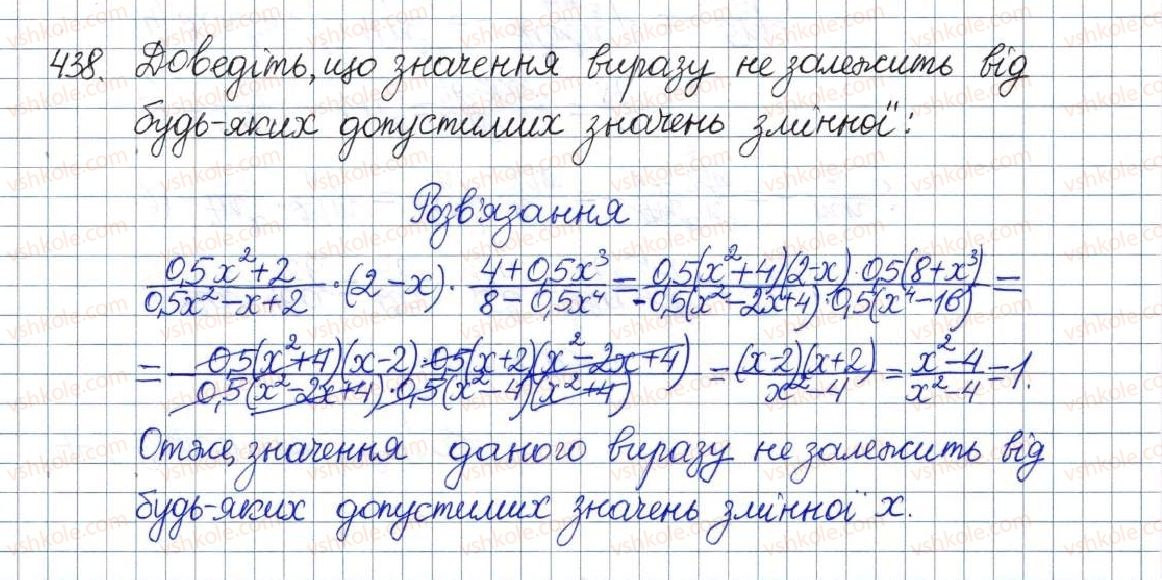 438. Доведіть, що значення виразу не залежить від
будь-яких допустимих значень змінної:
Розв'язання
(0,5x²+2)/(0,5x²-x+2) · (2-x) · (4+0,5x³)/(8-0,5x⁴) = (0,5(x²+4)(2-x)·0,5(8+x³))/(-0,5(x²-2x+4)·0,5(x⁴-16)) =
= (0,5(x²+4)(x-2)·0,5(x+2)(x²-2x+4))/(0,5(x²-2x+4)·0,5(x²-4)(x²+4)) = ((x-2)(x+2))/(x²-4) = (x²-4)/(x²-4) = 1.
Отже, значення даного виразу не залежить від
будь-яких допустимих значень змінної x.